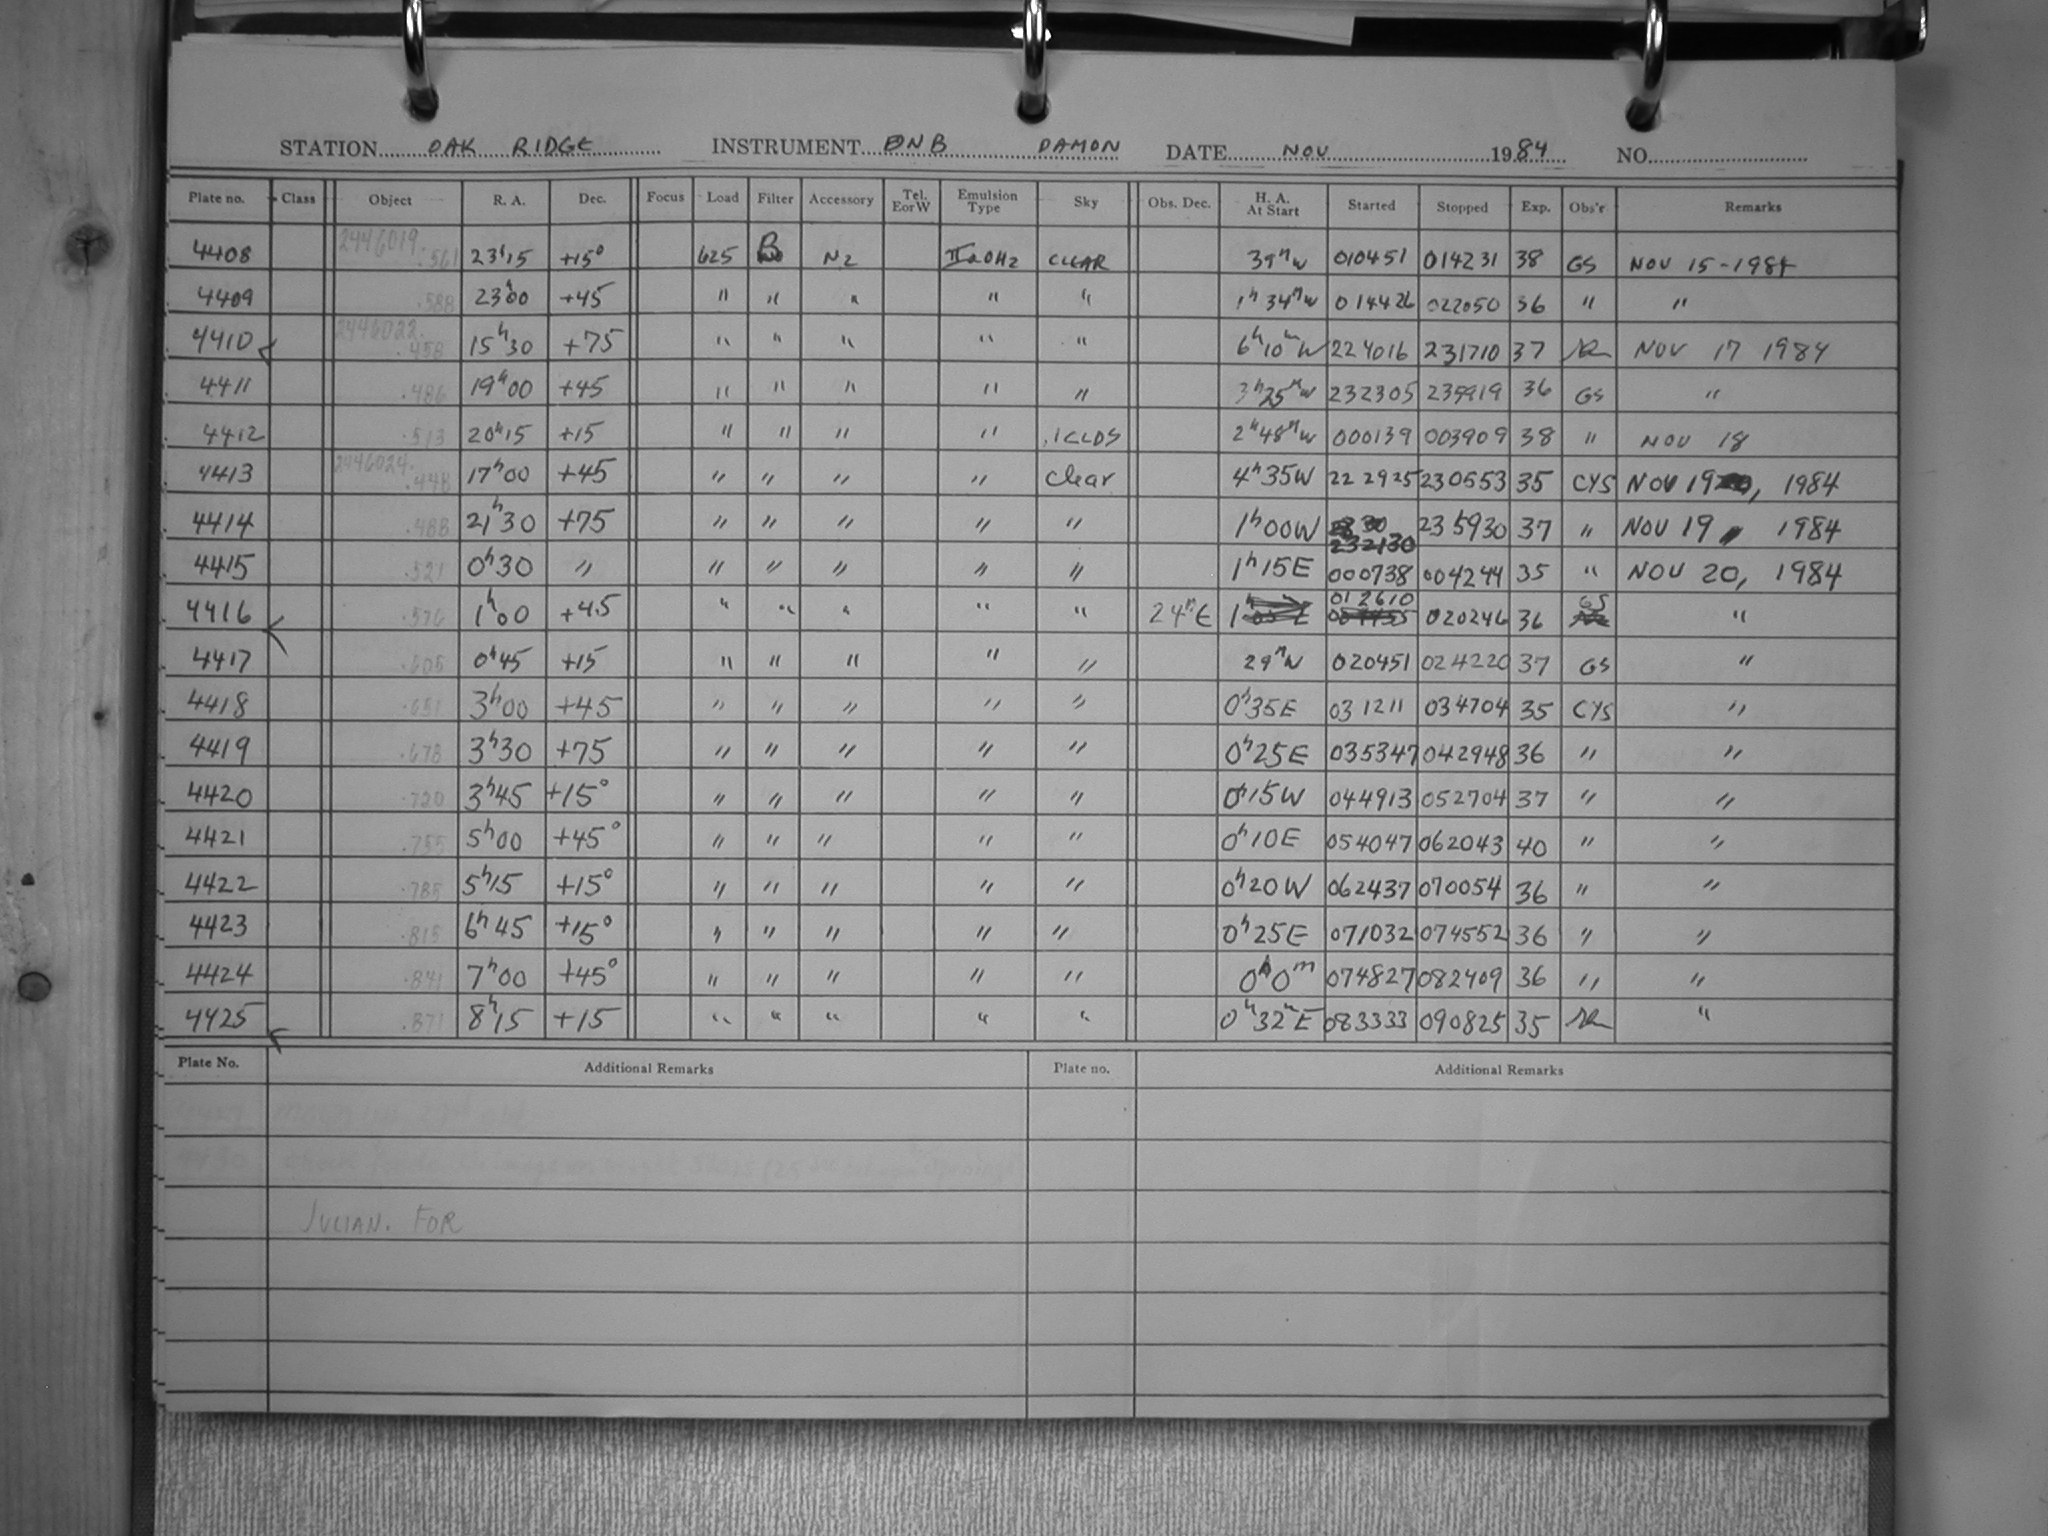 STATION OAK RIDGE INSTRUMENT DNB DAMON DATE NOV 1984 NO.
Plate no. Class Object R. A. Dec. Focus Load Filter Accessory Tel. E or W Emulsion Type Sky Obs. Dec. H. A. At Start Started Stopped Exp. Obs'r Remarks
4408 2446019. .561 23h15 +15° 625 B N2 IIaOH2 CLEAR 39m W 010451 014231 38 GS NOV 15-1984
4409 .588 23h00 +45 " " " " " 1h 34m W 014426 022050 36 " "
4410 2446022. .458 15h30 +75 " " " " " 6h10m W 224016 231710 37 NOV 17 1984
4411 .486 19h00 +45 " " " " " 3h25m W 232305 235919 36 GS "
4412 .513 20h15 +15 " " " " .1CLDS 2h48m W 000139 003909 38 " NOV 18
4413 2446024. .448 17h00 +45 " " " " Clear 4h35W 222925 230553 35 CYS NOV 19, 1984
4414 .488 21h30 +75 " " " " " 1h00W 232130 235930 37 " NOV 19, 1984
4415 .521 0h30 " " " " " " 1h15E 000738 004244 35 " NOV 20, 1984
4416 .576 1h00 +45 " " " " " 24m E 1h 012610 020246 36 GS "
4417 .605 0h45 +15 " " " " " 29m W 020451 024220 37 GS "
4418 .651 3h00 +45 " " " " " 0h35E 031211 034704 35 CYS "
4419 .678 3h30 +75 " " " " " 0h25E 035347 042948 36 " "
4420 .720 3h45 +15° " " " " " 0h15W 044913 052704 37 " "
4421 .755 5h00 +45° " " " " " 0h10E 054047 062043 40 " "
4422 .785 5h15 +15° " " " " " 0h20W 062437 070054 36 " "
4423 .815 6h45 +15° " " " " " 0h25E 071032 074552 36 " "
4424 .841 7h00 +45° " " " " " 0h0m 074827 082409 36 " "
4425 .871 8h15 +15 " " " " " 0h32m E 083333 090825 35 "
Plate No. Additional Remarks Plate no. Additional Remarks
JULIAN. FOR